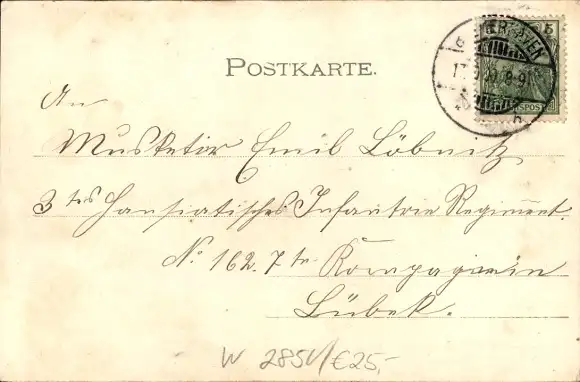 5
8-9
POSTKARTE.
An
Musketier Emil Löbnitz
3tes Hansiatisches Infantrie Regiment.
No 162. 7te Kompagniein
Lübek.
W 2851/€25,-